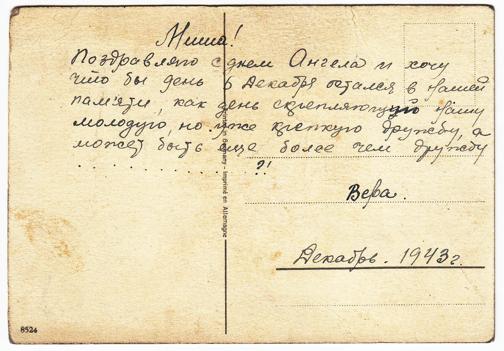 Миша!
Поздравляю с днем Ангела и хочу
что бы день 6 Декабря остался в нашей
памяти, как день скрепляющий нашу
молодую, но уже крепкую дружбу, а
может быть еще более чем дружбу
. . . . . . . . . . . . ?!
Вера.
Декабрь. 1943 г.
Imprimé en Allemagne
8524